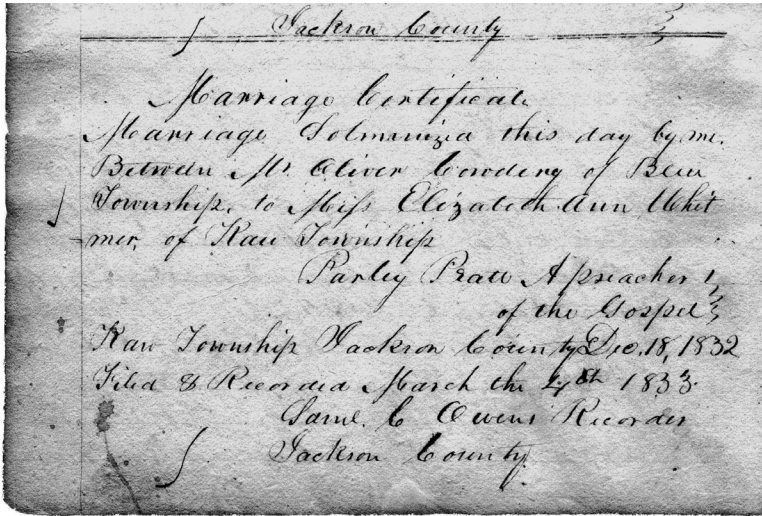 Jackson County
Marriage Certificate
Marriage Solmnizia this day by me.
Between Mr. Oliver Cowdery of Blue
Township, to Miss Elizabeth Ann Whit
=mer, of Kaw Township
Parley Pratt A preacher
of the Gospel
Kaw Township Jackson County Dec. 18, 1832
Filed & Recorded March the 4th 1833.
Saml. C Owens Recorder
Jackson County